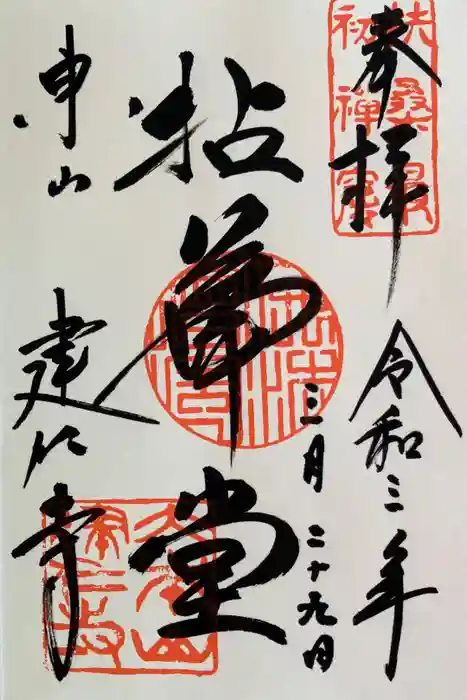 扶桑最初禅窟
奉拝
令和三年
三月二十九日
拈華堂
東山
建仁寺
大本山
建仁寺